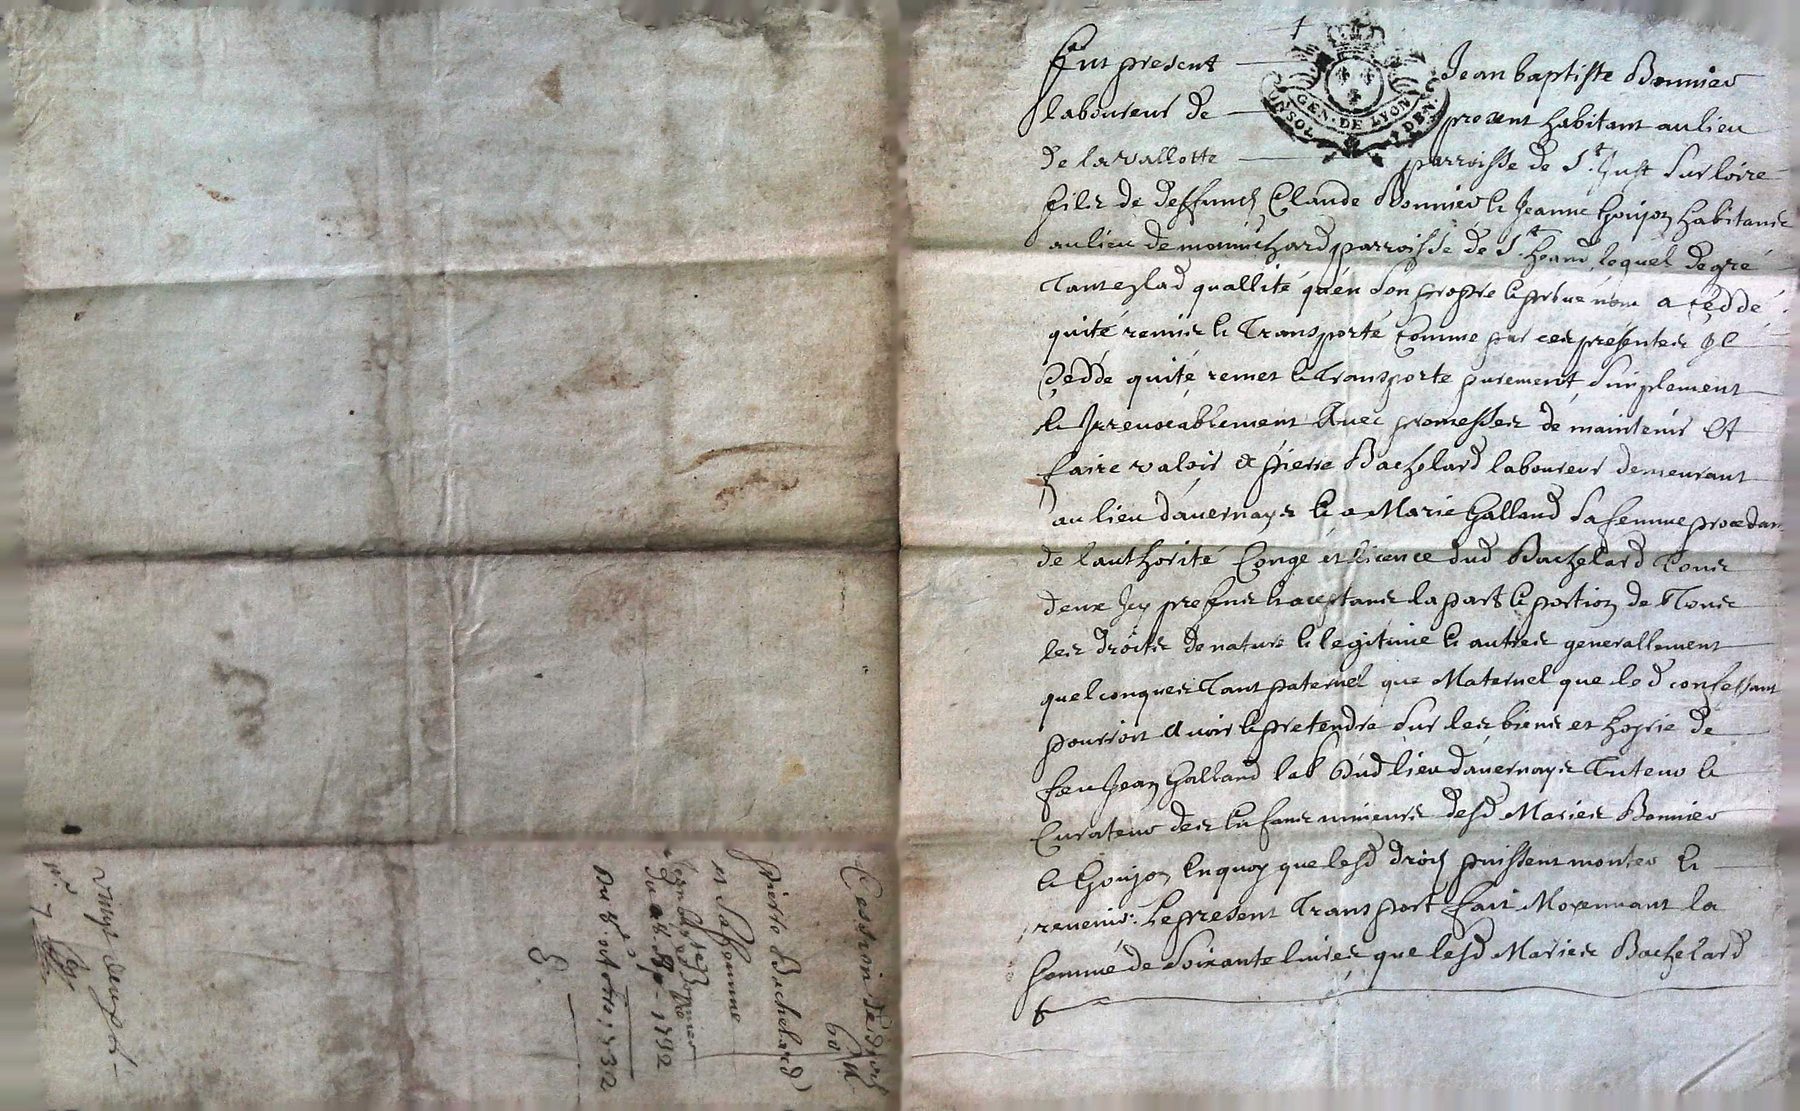 Fut present Jean baptiste Bonnier
laboureur de present habitant au lieu
de la vallotte parroisse de St. Just sur loire
fils de deffunct Claude Bonnier et Jeanne Goujon habitans
au lieu de parroisse de St. lequel de gré
tant esd quallité qu'en son propre et privé nom a ceddé
quité remis et transporté comme par ces presentes il
cedde quite remet et transporte purement simplement
et Irrevocablement Avec promesses de maintenir Et
faire valoir a pierre Bachelard laboureur demeurant
au lieu davernays et a Marie Galland sa femme procedant
de lauthorité congé et licence dud Bachelard tous
deux Icy presens et aceptans la part et portion de tous
les droits de nature et legitime et autres generallement
quelconques tant paternel que Maternel que led confessant
pourroit avoir et pretendre sur les biens et hoyrie de
feu Jean Galland lab dud lieu davernays tuteur et
curateur des enfans mineurs desd Maries Bonnier
et Goujon en quoy que lesd droits puissent monter et
revenir. Le present transport fait Moyennant la
somme de soixante livres que lesd Maries Bachelard
GEN. DE LYON
Cession de droit
pierre Bachelard
et sa femme
Jean Baptiste Bonnier
1732
vingt deux